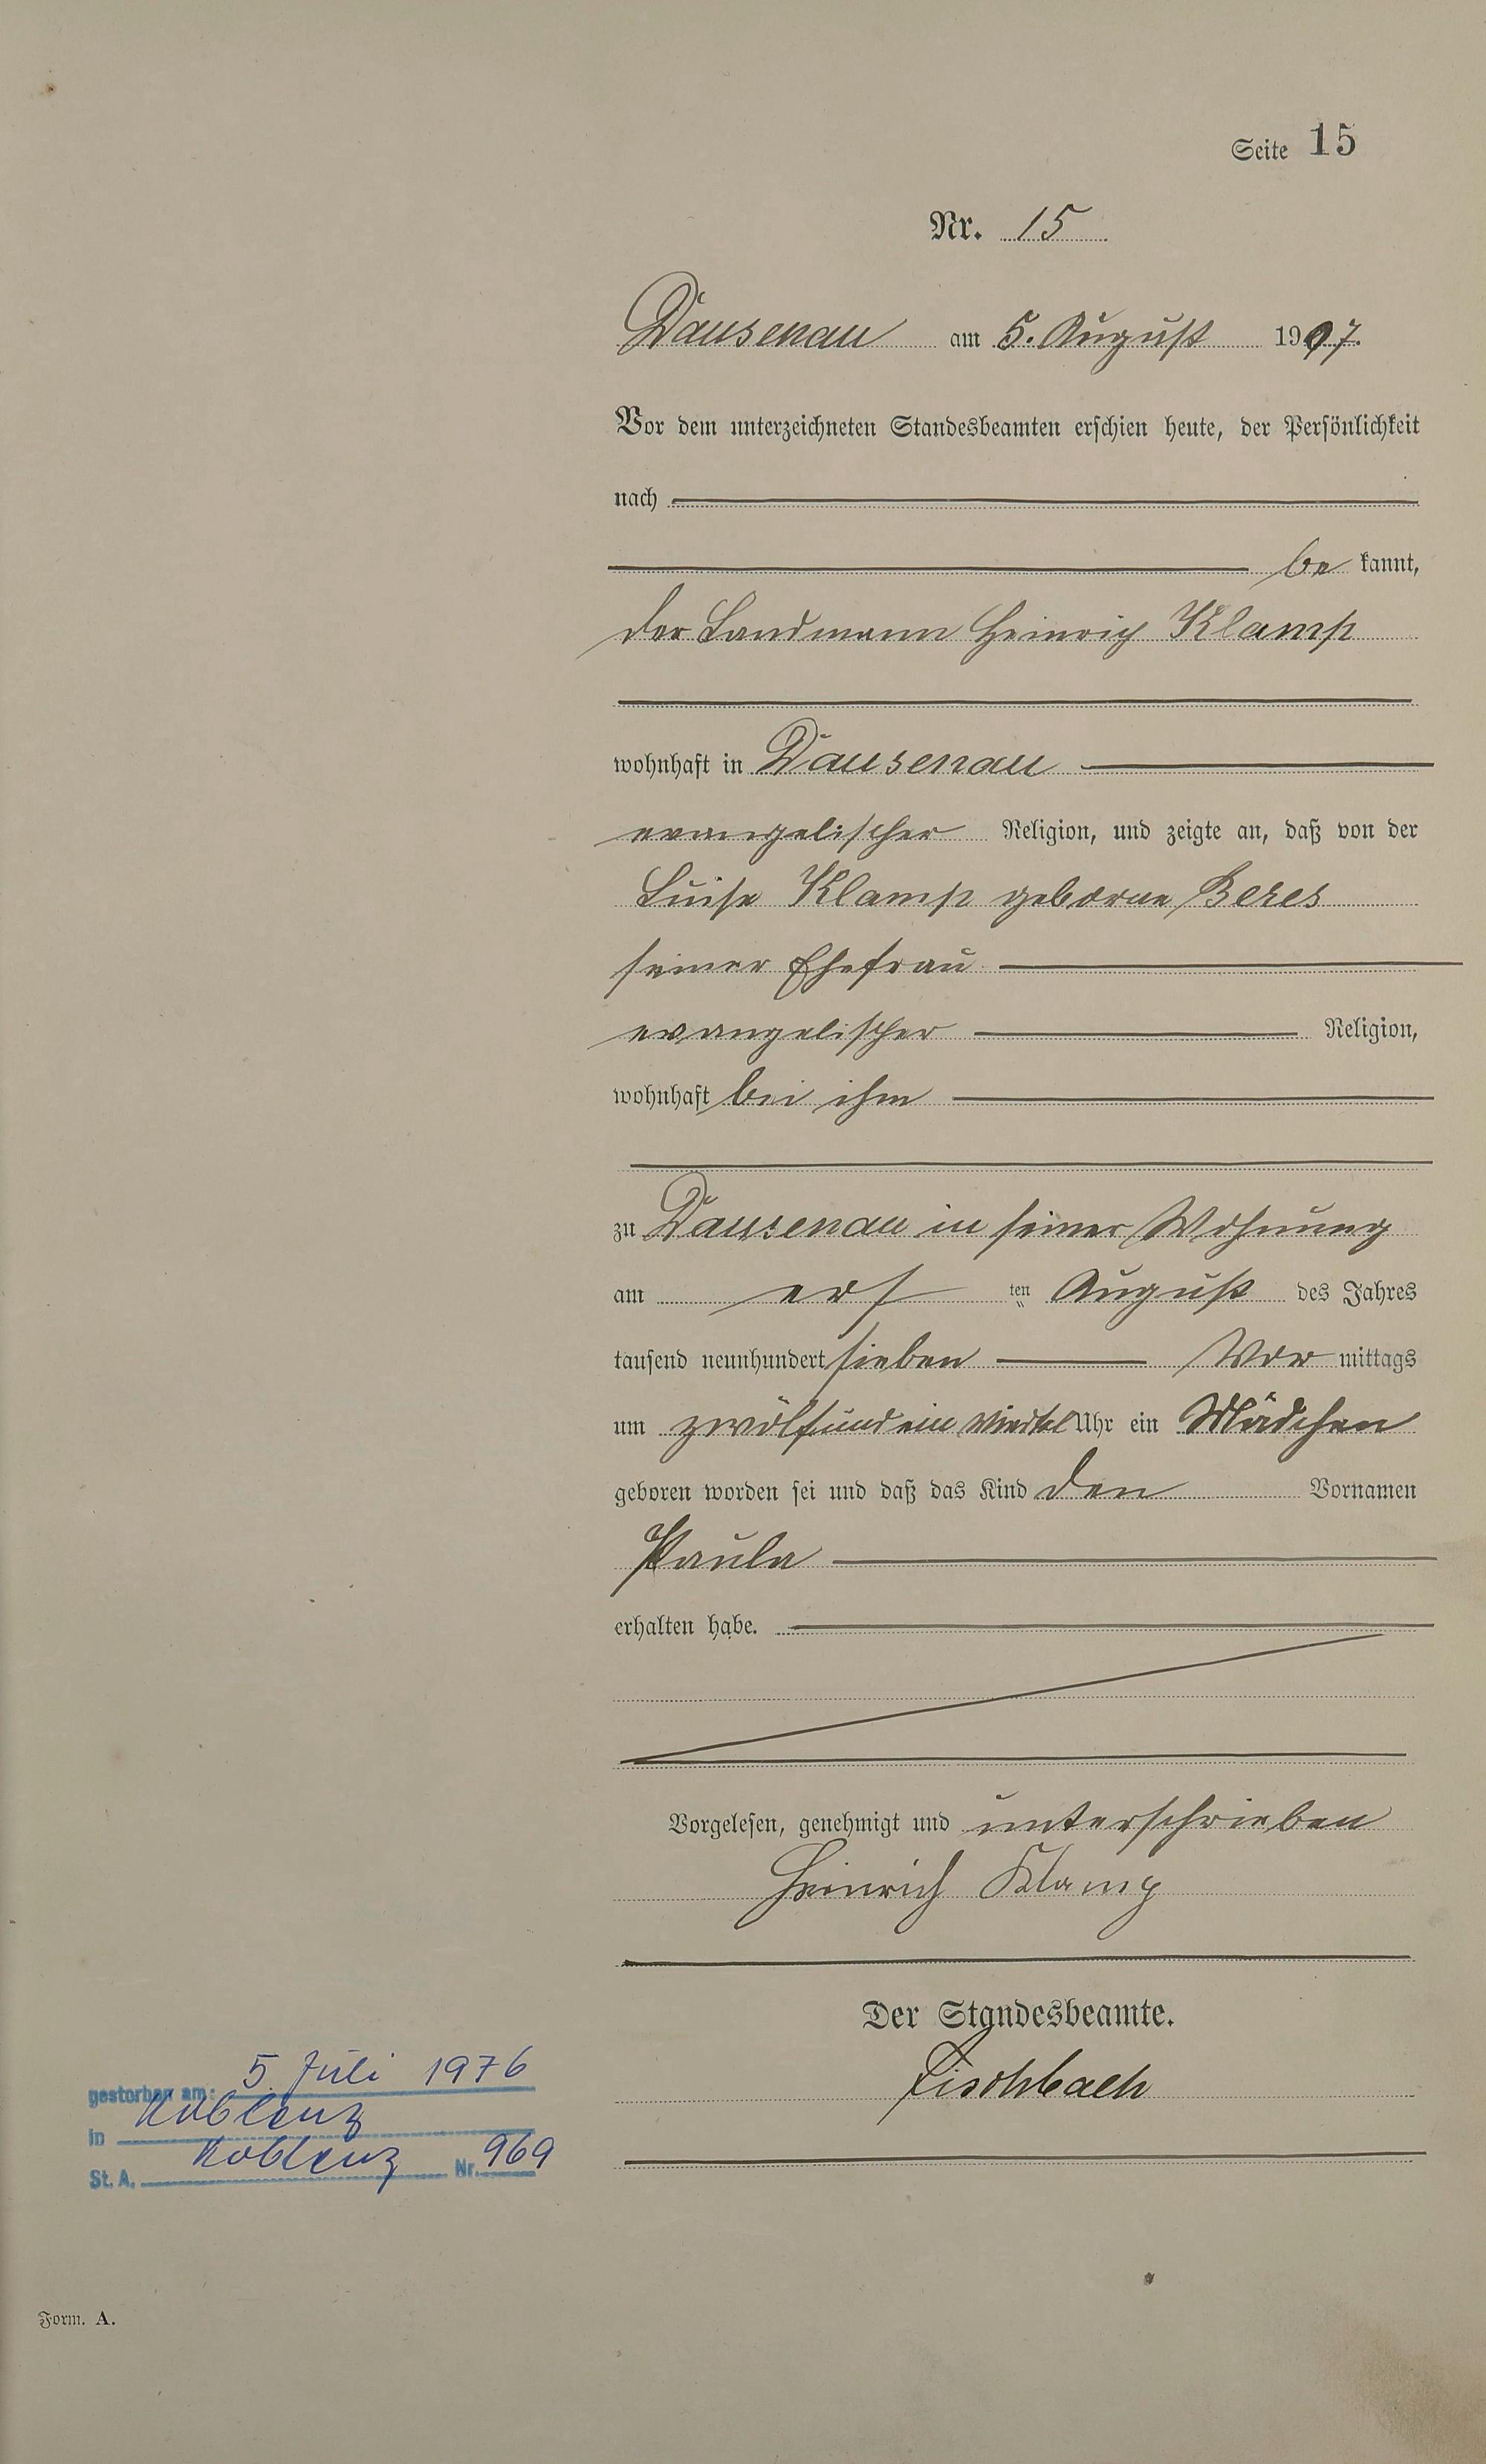 Seite 15
Nr. 15
Dausenau am 5. August 1907.
Vor dem unterzeichneten Standesbeamten erschien heute, der Persönlichkeit
nach
be kannt,
der Landmann Heinrich Klamp
wohnhaft in Dausenau
evangelischer Religion, und zeigte an, daß von der
Luise Klamp geborne Beres
seiner Ehefrau
evangelischer Religion,
wohnhaft bei ihm
zu Dausenau in seiner Wohnung
am ers ten August des Jahres
tausend neunhundert sieben Vor mittags
um zwölf und ein Viertel Uhr ein Mädchen
geboren worden sei und daß das Kind den Vornamen
Paula
erhalten habe.
Vorgelesen, genehmigt und unterschrieben
Heinrich Klamp
Der Standesbeamte.
Fischbach
gestorben am: 5. Juli 1976
in Koblenz
St. A. Koblenz Nr. 969
Form. A.